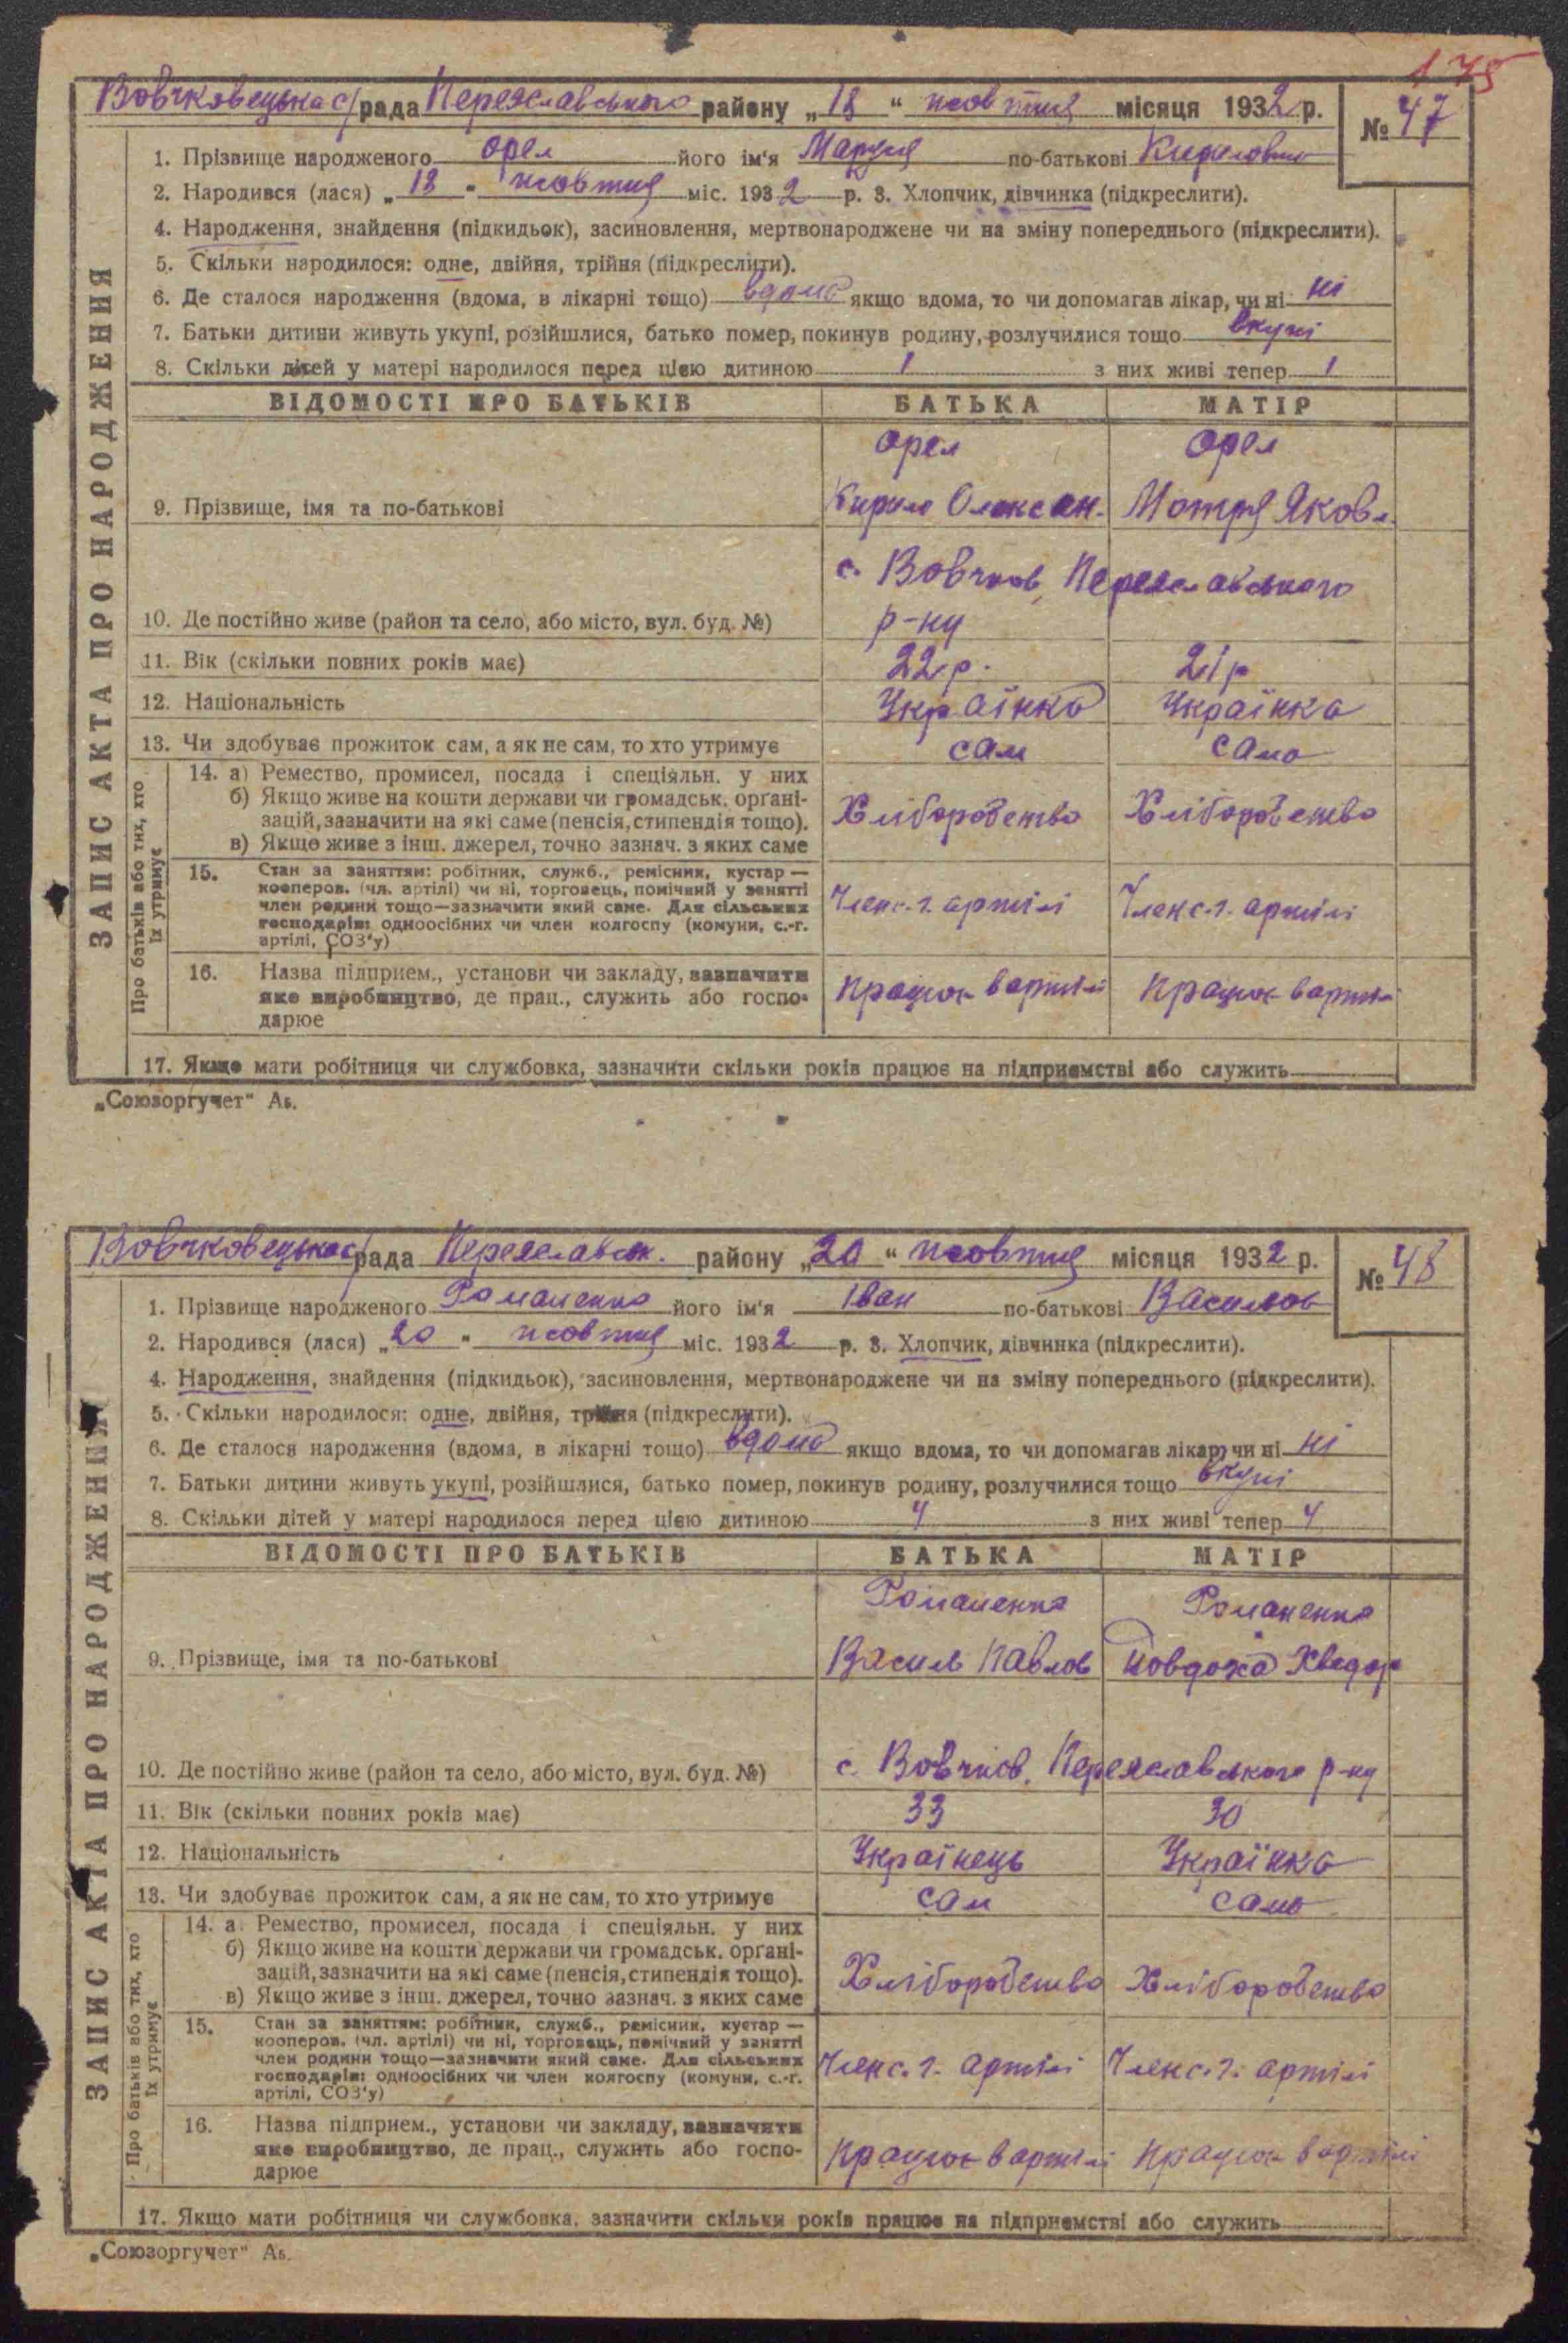 175
Вовчковецька с/рада Переяславського району „18“ жовтня місяця 1932 р. № 47
1. Прізвище народженого Орел його ім'я Маруся по-батькові Кириловна
2. Народився (лася) „18“ жовтня міс. 1932 р. 3. Хлопчик, дівчинка (підкреслити).
4. Народження, знайдення (підкидьок), засиновлення, мертвонароджене чи на зміну попереднього (підкреслити).
5. Скільки народилося: одне, двійня, трійня (підкреслити).
6. Де сталося народження (вдома, в лікарні тощо) вдома якщо вдома, то чи допомагав лікар, чи ні ні
7. Батьки дитини живуть укупі, розійшлися, батько помер, покинув родину, розлучилися тощо вкупі
8. Скільки дітей у матері народилося перед цією дитиною 1 з них живі тепер 1
ЗАПИС АКТА ПРО НАРОДЖЕННЯ
ВІДОМОСТІ ПРО БАТЬКІВ БАТЬКА МАТІР
Орел Орел
9. Прізвище, імя та по-батькові Кирило Олексан. Мотря Яковл.
с. Вовчков, Переяславського
10. Де постійно живе (район та село, або місто, вул. буд. №) р-ну
11. Вік (скільки повних років має) 22 р. 21 р
12. Національність Українка Українка
13. Чи здобуває прожиток сам, а як не сам, то хто утримує сам сама
Про батьків або тих, хто їх утримує
14. а) Ремество, промисел, посада і спеціяльн. у них
б) Якщо живе на кошти держави чи громадськ. орґані-
зацій, зазначити на які саме (пенсія, стипендія тощо). Хліборобство Хліборобство
в) Якщо живе з інш. джерел, точно зазнач. з яких саме
15. Стан за заняттям: робітник, служб., ремісник, кустар —
кооперов. (чл. артілі) чи ні, торговець, помічний у занятті
член родини тощо—зазначити який саме. Для сільських Член с.г. артілі Член с.г. артілі
господарів: одноосібних чи член колгоспу (комуни, с.-г.
артілі, СОЗ'у)
16. Назва підприєм., установи чи закладу, зазначити
яке виробництво, де прац., служить або госпо- працює в артілі працює в артілі
дарює
17. Якщо мати робітниця чи службовка, зазначити скільки років працює на підприємстві або служить
„Союзоргучет“ Аб.
Вовчковецька с/рада Переяславськ. району „20“ жовтня місяця 1932 р. № 48
1. Прізвище народженого Романенко його ім'я Іван по-батькові Васильов
2. Народився (лася) „20“ жовтня міс. 1932 р. 3. Хлопчик, дівчинка (підкреслити).
4. Народження, знайдення (підкидьок), засиновлення, мертвонароджене чи на зміну попереднього (підкреслити).
5. Скільки народилося: одне, двійня, трійня (підкреслити).
6. Де сталося народження (вдома, в лікарні тощо) вдома якщо вдома, то чи допомагав лікар, чи ні ні
7. Батьки дитини живуть укупі, розійшлися, батько помер, покинув родину, розлучилися тощо вкупі
8. Скільки дітей у матері народилося перед цією дитиною 4 з них живі тепер 4
ЗАПИС АКТА ПРО НАРОДЖЕННЯ
ВІДОМОСТІ ПРО БАТЬКІВ БАТЬКА МАТІР
Романенко Романенко
9. Прізвище, імя та по-батькові Василь Павлов Йовдоха Хведор
10. Де постійно живе (район та село, або місто, вул. буд. №) с. Вовчков, Переяславського р-ну
11. Вік (скільки повних років має) 33 30
12. Національність Українець Українка
13. Чи здобуває прожиток сам, а як не сам, то хто утримує сам сама
Про батьків або тих, хто їх утримує
14. а Ремество, промисел, посада і спеціяльн. у них
б) Якщо живе на кошти держави чи громадськ. орґані-
зацій, зазначити на які саме (пенсія, стипендія тощо). Хліборобство Хліборобство
в) Якщо живе з інш. джерел, точно зазнач. з яких саме
15. Стан за заняттям: робітник, служб., ремісник, кустар —
кооперов. (чл. артілі) чи ні, торговець, помічний у занятті
член родини тощо—зазначити який саме. Для сільських Член с.г. артілі Член с.г. артілі
господарів: одноосібних чи член колгоспу (комуни, с.-г.
артілі, СОЗ'у)
16. Назва підприєм., установи чи закладу, зазначити
яке виробництво, де прац., служить або госпо- працює в артілі працює в артілі
дарює
17. Якщо мати робітниця чи службовка, зазначити скільки років працює на підприємстві або служить
„Союзоргучет“ Аб.